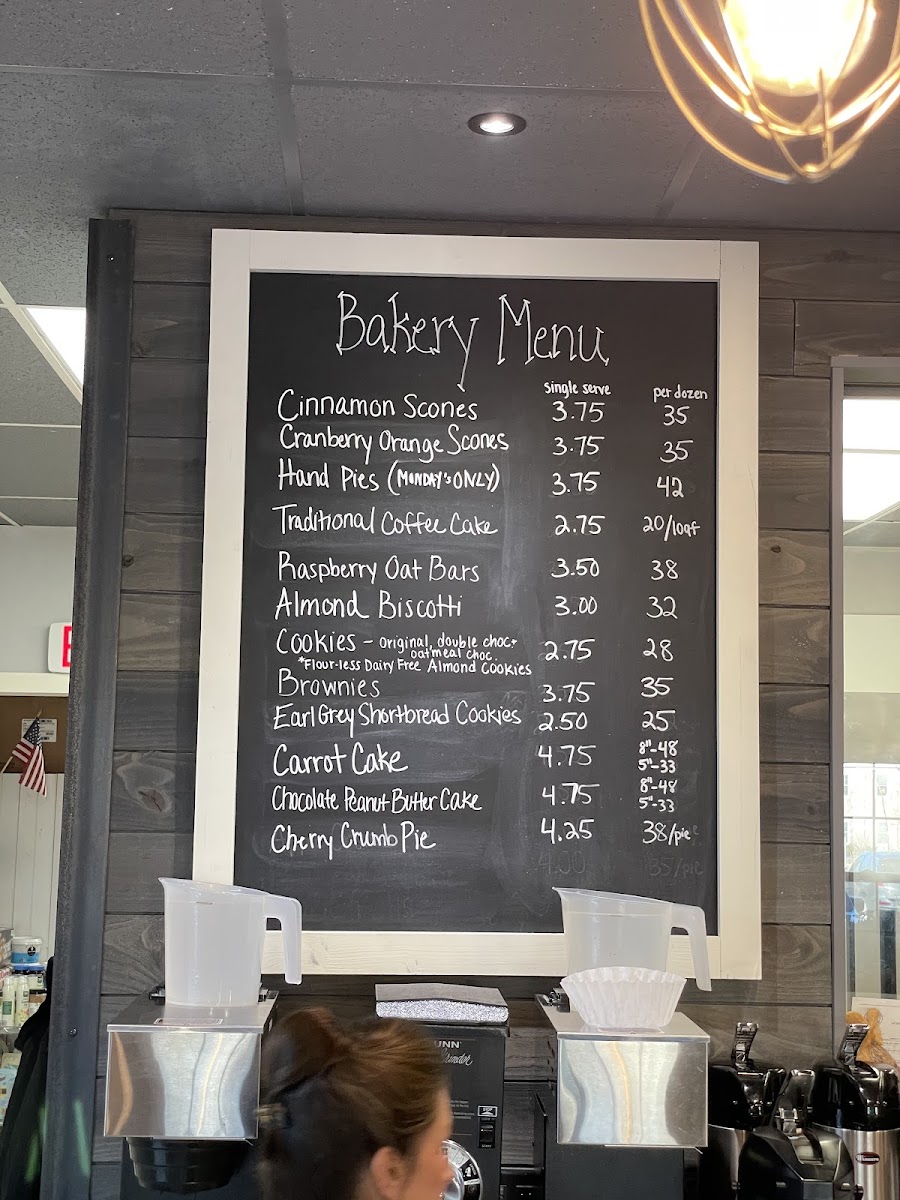 Bakery Menu
single serve per dozen
Cinnamon Scones 3.75 35
Cranberry Orange Scones 3.75 35
Hand Pies (MONDAY'S ONLY) 3.75 42
Traditional Coffee Cake 2.75 20/loaf
Raspberry Oat Bars 3.50 38
Almond Biscotti 3.00 32
Cookies - original, double choc.
oatmeal choc. 2.75 28
*Flour-less Dairy Free Almond Cookies
Brownies 3.75 35
Earl Grey Shortbread Cookies 2.50 25
Carrot Cake 4.75 8"-48
5"-33
Chocolate Peanut Butter Cake 4.75 8"-48
5"-33
Cherry Crumb Pie 4.25 38/pie
4.00 35/pie